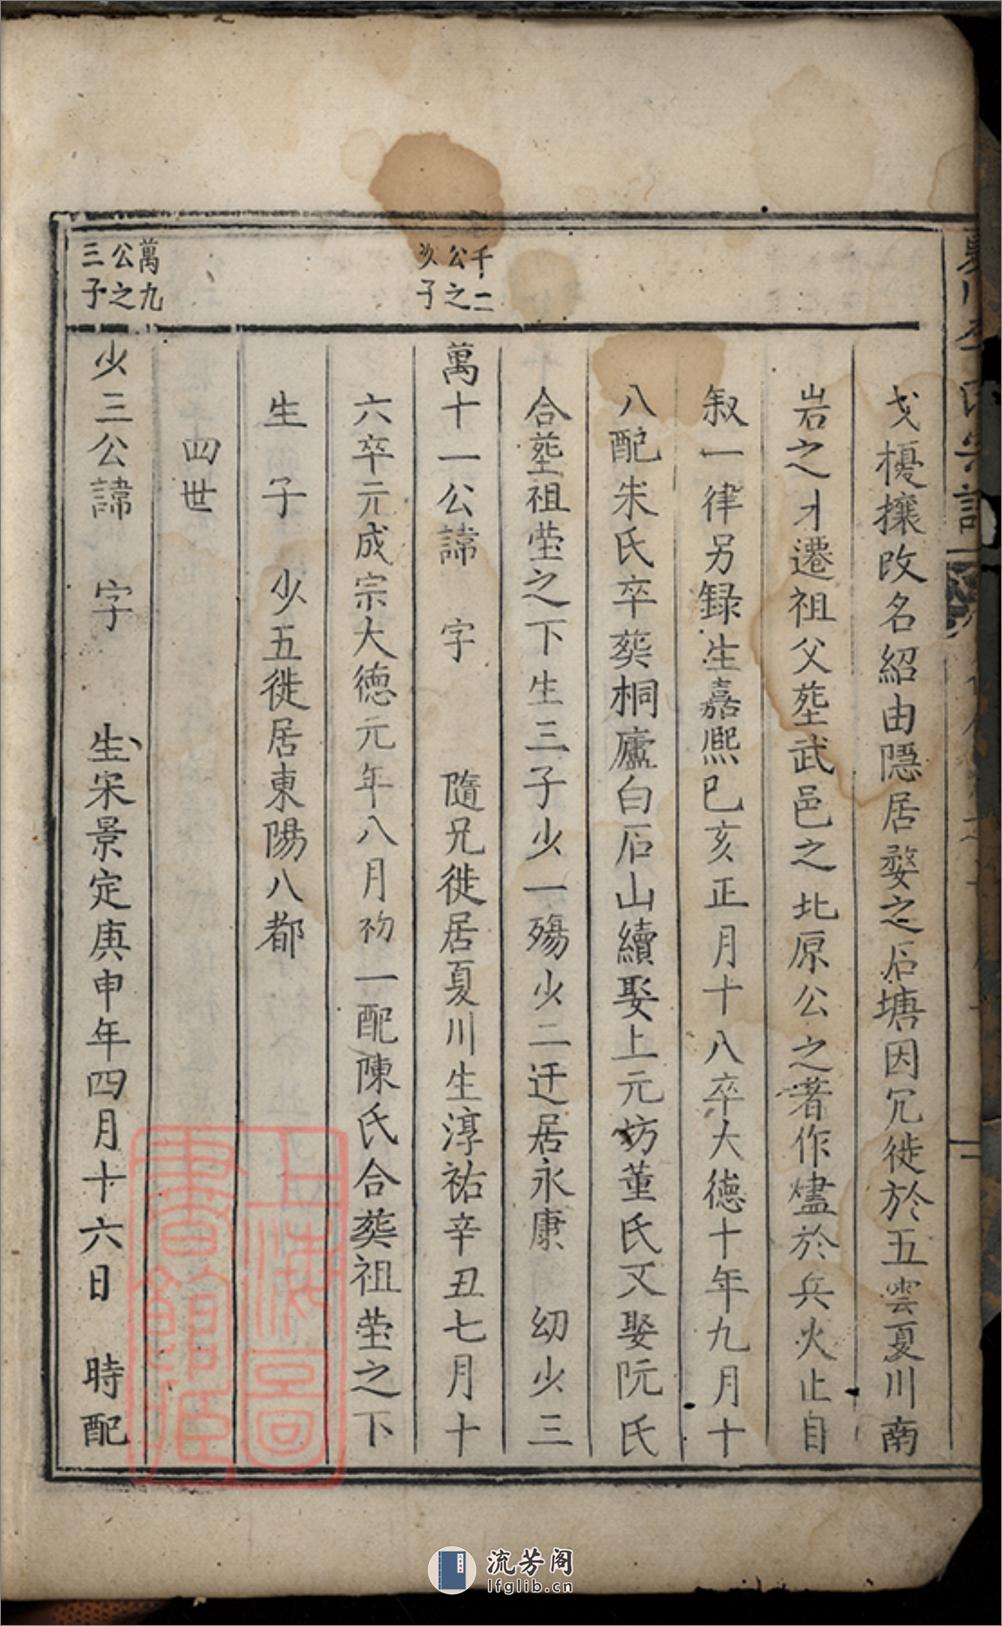 戈擾攘改名紹由隱居婺之石塘因冗徙於五雲夏川南
岩之才遷祖父塟武邑之北原公之著作燼於兵火止自
叙一律另録生嘉熙己亥正月十八卒大德十年九月十
八配朱氏卒葬桐廬白石山續娶上元坊董氏又娶阮氏
合塟祖塋之下生三子少一殤少二迁居永康 幼少三
千二
公之
次子
萬十一公諱 字 隨兄徙居夏川生淳祐辛丑七月十
六卒元成宗大德元年八月初一配陳氏合葬祖塋之下
生 子 少五徙居東陽八都
四世
萬九
公之
三子
少三公諱 字 生宋景定庚申年四月十六日 時配
上海圖
書館藏
流芳阁
lfglib.cn